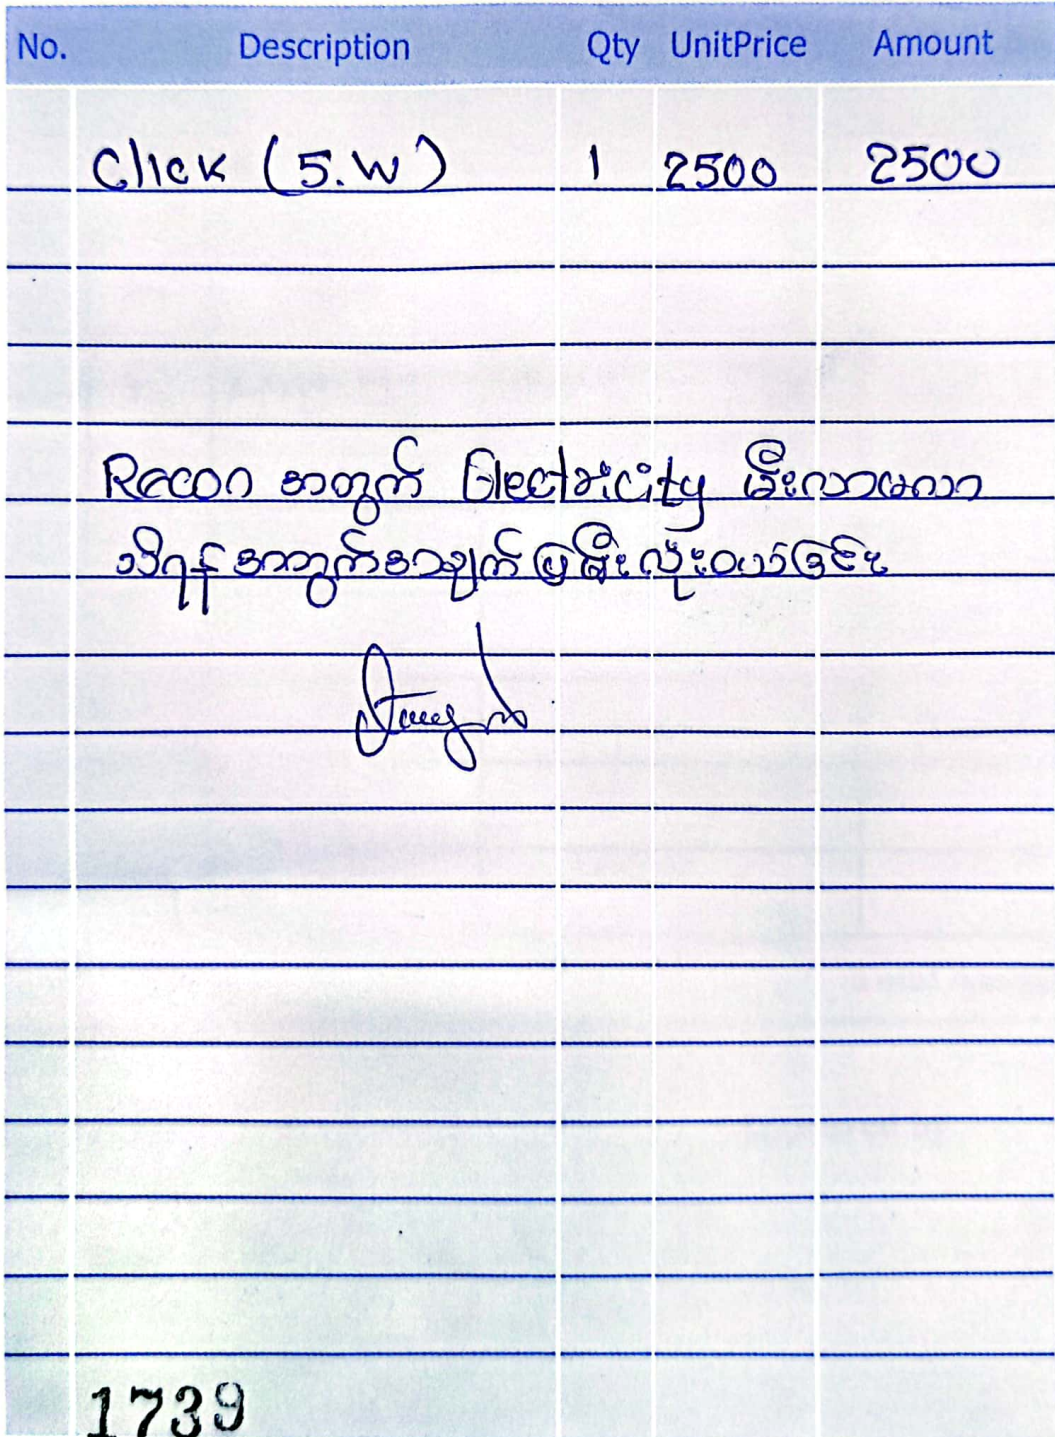 No. Description Qty UnitPrice Amount
Click (5.W) 1 2500 2500
Recon အတွက် Electricity မီးလာမလာ
သိရန် အတွက်အချက်ပြမီးလုံးဝယ်ခြင်း
1739